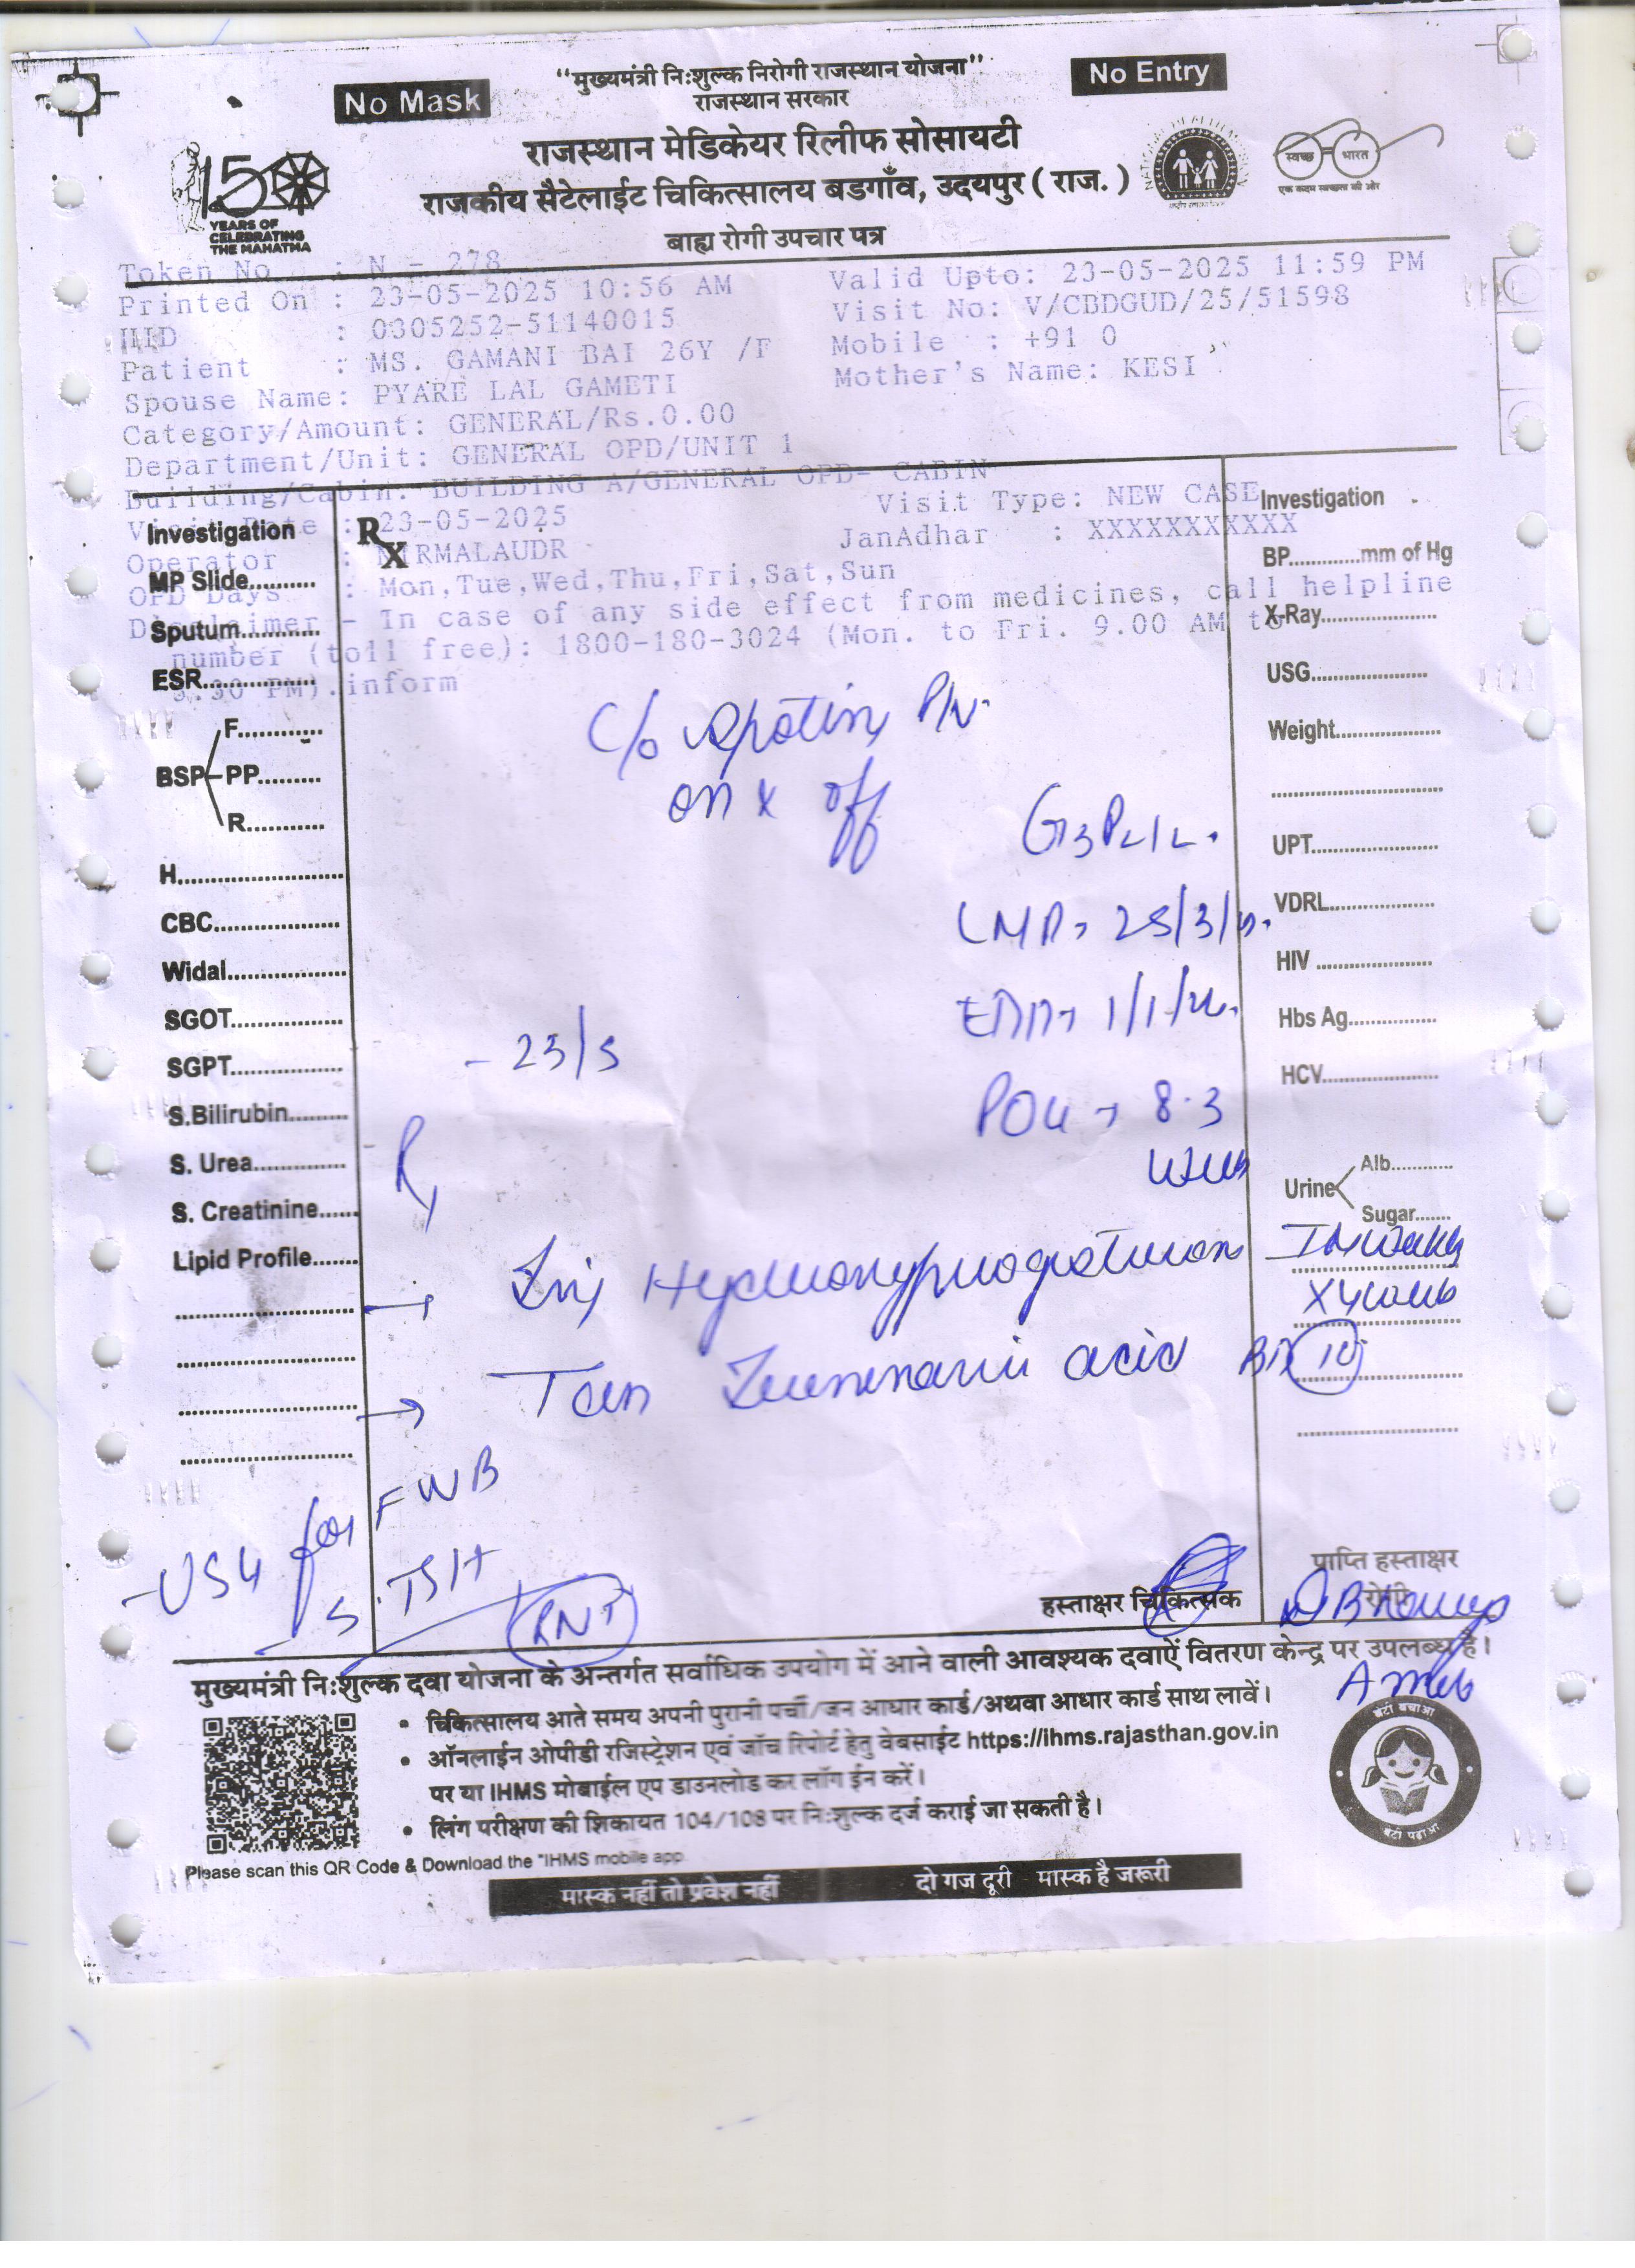 No Mask
"मुख्यमंत्री नि:शुल्क निरोगी राजस्थान योजना"
No Entry
राजस्थान सरकार
राजस्थान मेडिकेयर रिलीफ सोसायटी
राजकीय सैटेलाईट चिकित्सालय बडगाँव, उदयपुर ( राज. )
बाह्य रोगी उपचार पत्र
150
YEARS OF
CELEBRATING
THE MAHATMA
स्वच्छ भारत
एक कदम स्वच्छता की ओर
Token No : N - 278
Printed On : 23-05-2025 10:56 AM
Valid Upto: 23-05-2025 11:59 PM
: 0305252-51140015
Visit No: V/CBDGUD/25/51598
Patient : MS. GAMANI BAI 26Y /F
Mobile : +91 0
Spouse Name: PYARE LAL GAMETI
Mother's Name: KESI
Category/Amount: GENERAL/Rs.0.00
Department/Unit: GENERAL OPD/UNIT 1
Building/Cabin: BUILDING A/GENERAL OPD- CABIN
: 23-05-2025
Visit Type: NEW CASE
Operator : NIRMALAUDR
JanAdhar : XXXXXXXXXXX
OPD Days : Mon,Tue,Wed,Thu,Fri,Sat,Sun
Disclaimer - In case of any side effect from medicines, call helpline
number (toll free): 1800-180-3024 (Mon. to Fri. 9.00 AM to
5.30 PM).inform
Investigation
Rx
MP Slide..........
Sputum............
ESR.................
BSP
F............
PP.........
R...........
H.........................
CBC...................
Widal..................
SGOT.................
SGPT.................
S.Bilirubin.........
S. Urea..............
S. Creatinine......
Lipid Profile.......
Investigation
BP...........mm of Hg
X-Ray....................
USG....................
Weight..................
UPT......................
VDRL..................
HIV ....................
Hbs Ag...............
HCV....................
Urine
Alb...........
Sugar.......
C/o Spotting P/V.
on & off
G3P2L2.
LMP → 25/3/25.
EDD → 1/1/26.
- 23/5
POG → 8.3
weeks
Rx
→ Inj Hydroxyprogesterone IM weekly
x 4 weeks
→ Tab Tranexamic acid BD 10
- USG for FWB
- S. TSH
RNT
हस्ताक्षर चिकित्सक
प्राप्ति हस्ताक्षर
रोगी
मुख्यमंत्री नि:शुल्क दवा योजना के अन्तर्गत सर्वाधिक उपयोग में आने वाली आवश्यक दवाऐं वितरण केन्द्र पर उपलब्ध है।
• चिकित्सालय आते समय अपनी पुरानी पर्ची/जन आधार कार्ड/अथवा आधार कार्ड साथ लावें।
• ऑनलाईन ओपीडी रजिस्ट्रेशन एवं जाँच रिपोर्ट हेतु वेबसाईट https://ihms.rajasthan.gov.in
पर या IHMS मोबाईल एप डाउनलोड कर लॉग ईन करें।
• लिंग परीक्षण की शिकायत 104/108 पर नि:शुल्क दर्ज कराई जा सकती है।
Please scan this QR Code & Download the "IHMS mobile app
बेटी बचाओ
बेटी पढ़ाओ
मास्क नहीं तो प्रवेश नहीं
दो गज दूरी मास्क है जरूरी